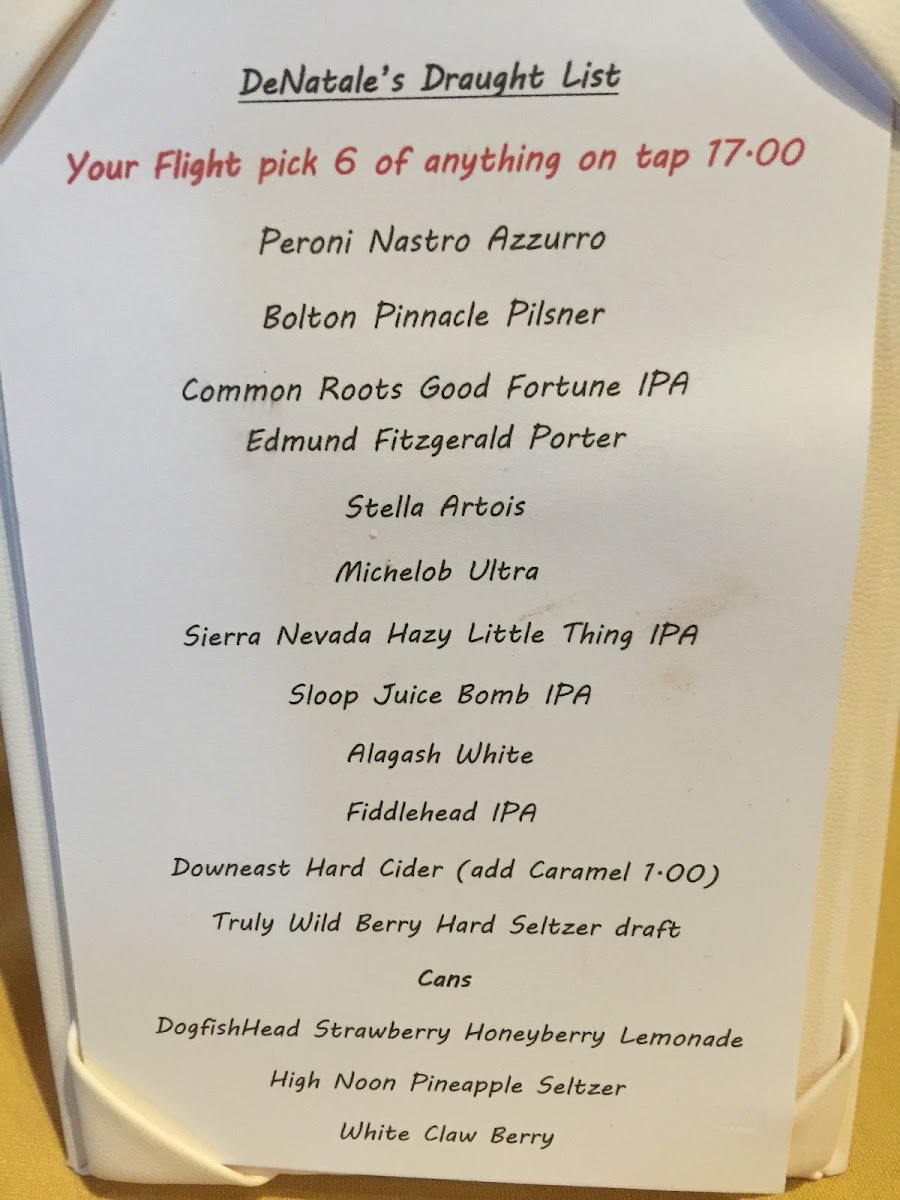 DeNatale's Draught List
Your Flight pick 6 of anything on tap 17.00
Peroni Nastro Azzurro
Bolton Pinnacle Pilsner
Common Roots Good Fortune IPA
Edmund Fitzgerald Porter
Stella Artois
Michelob Ultra
Sierra Nevada Hazy Little Thing IPA
Sloop Juice Bomb IPA
Alagash White
Fiddlehead IPA
Downeast Hard Cider (add Caramel 1.00)
Truly Wild Berry Hard Seltzer draft
Cans
DogfishHead Strawberry Honeyberry Lemonade
High Noon Pineapple Seltzer
White Claw Berry